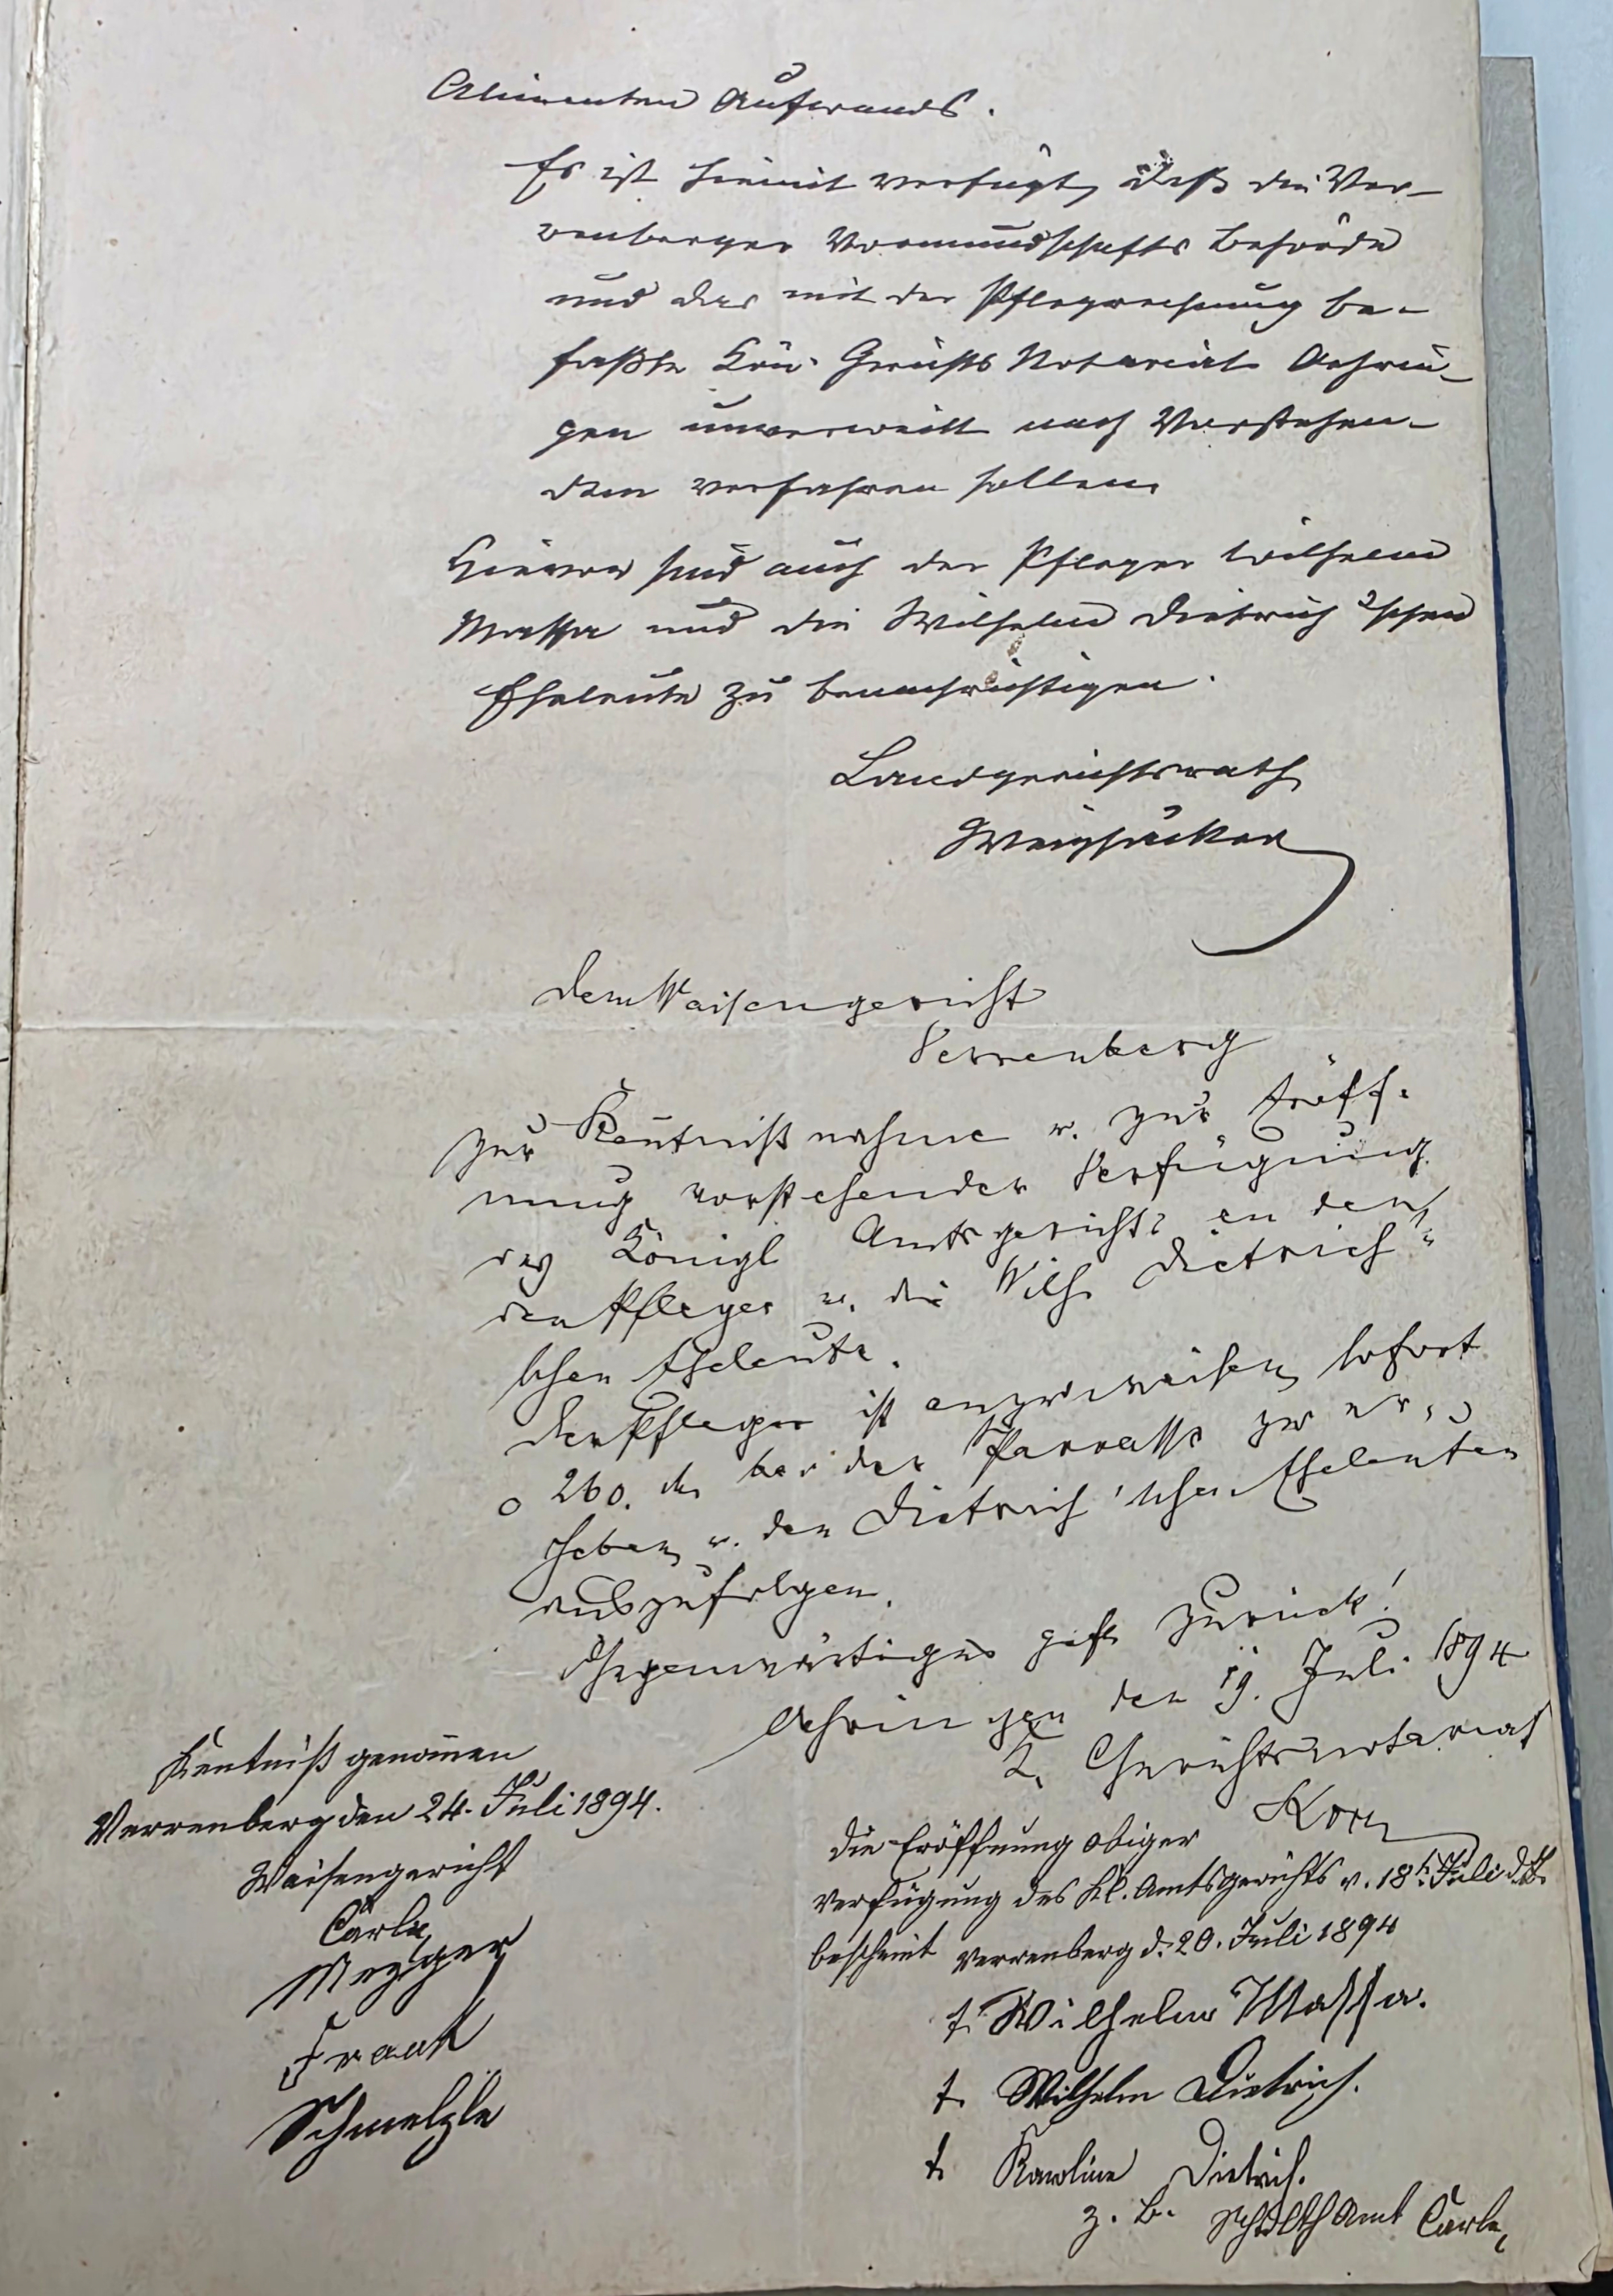 Alimenten Aufwands.
Es ist hiemit verfügt, daß die Ver-
renberger Vormundschafts Behörde
und das mit der Pflegrechnung be-
faßte Kön. Gerichts Notariat Oehrin-
gen unverweilt nach Vorstehen-
dem verfahren sollen.
Hievon sind auch der Pfleger Wilhelm
Massa und die Wilhelm Dietrich'schen
Eheleute zu benachrichtigen.
Landgerichtsrath
Weizsäcker
Dem Waisengericht
Verrenberg
zur Kentnißnahme u. zur Eröff-
nung vorstehender Verfügung
des Königl Amtsgerichts an den
den Pfleger u. die Wilh. Dietrich'
schen Eheleute.
Der Pfleger ist anzuweisen, sofort
260. M bei der Sparkasse zu er-
heben u. den Dietrich'schen Eheleuten
auszufolgen.
Gegenwärtiges geht zurück!
Oehringen den 19. Juli 1894
K. Gerichtsnotariat
Korn
Kentniß genomen
Verrenberg den 24. Juli 1894.
Waisengericht
Carle
Mezger
Frank
Schmelzle
Die Eröffnung obiger
Verfügung des Kl. Amtsgerichts v. 18t. Juli d.J.
bescheint Verrenberg d. 20. Juli 1894
t. Wilhelm Massa.
t. Wilhelm Dietrich.
t. Karoline Dietrich.
z. B. Schulth Amt Carle,